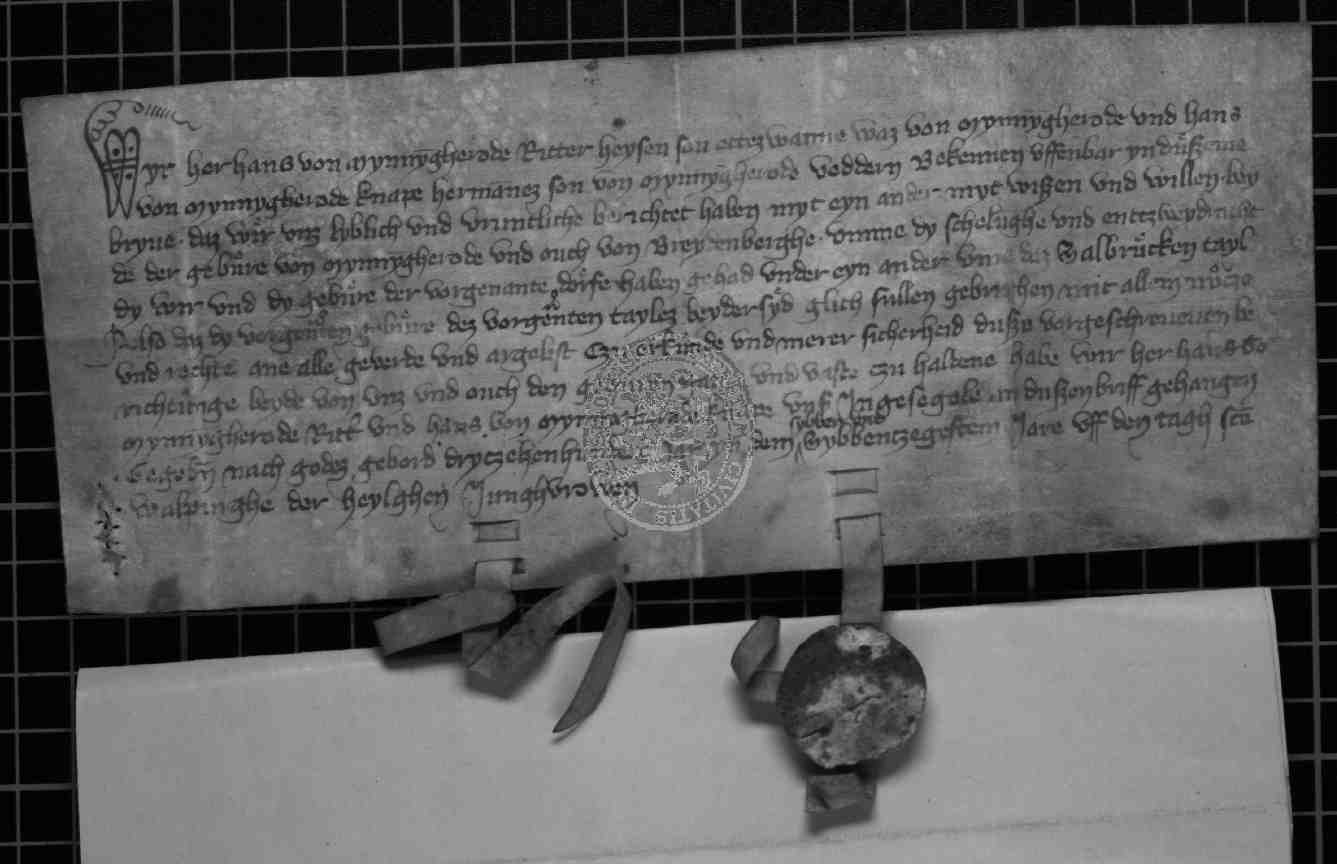 Wyr her hans von Mynnygherode Ritter heysen son ettezwanne waz von Mynnygherode und hans
von Mynnygherode knape hermanez son von Mynnygherode veddern Bekennen uffenbar yn dußeme
bryue daz wir unz lyblich und vruntliche berichtet haben myt eyn ander myt wißen und willen bey
de der gebure von Mynnygherode und ouch von Breytenberghe umme dy schelughe und entczweydracht
dy wir und dy gebure der vorgenante dorfe haben gehad under eyn ander umme daz Salbrucken tayl
Also daz dy vorgenten gebure dez vorgenten taylez beydersyd glich sullen gebruchen mit allem nucze
und rechte ane alle geverde und argelist Czu orkunde und merer sicherheid dußer vorgeschrevenen be
richtunge beyde von unz und ouch den und vaste zu haltene habe wir her hans vo
Mynnygherode Ritter und hans von Mynnygherode knape unse Ingesegele an dußen briff gehangen
Gegeben nach godez gebord dryczehenhundert in dem sybben und Sybbenczegestem Jare uff den tagh scte
walpurghe der heylghen Junghvrowen
CIVITATIS